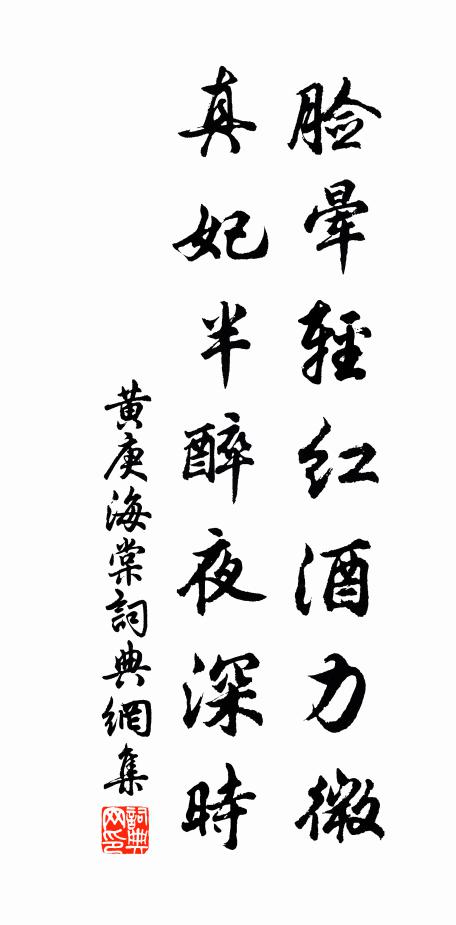 脸晕輕红酒力微
真妃半醉夜深時
黄庚海棠詞典網集
詞典网印